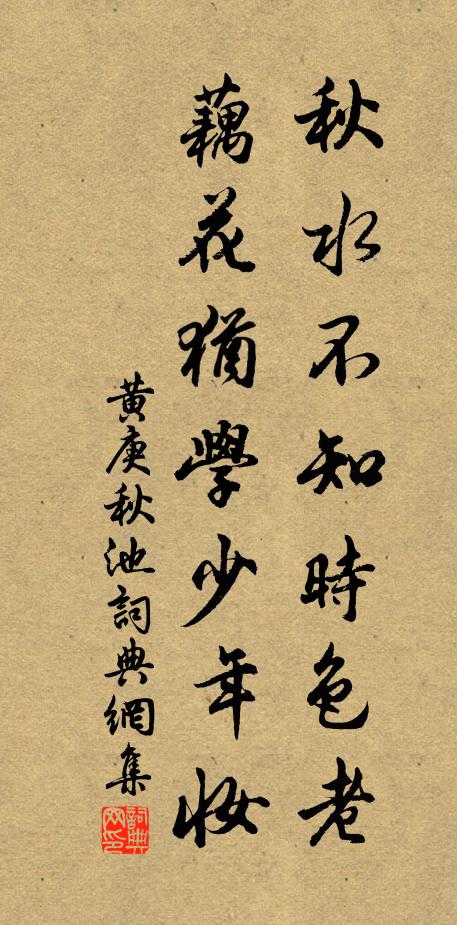 秋水不知時色老
藕花猶學少年妝
黃庚秋池詞典網集
詞典网印